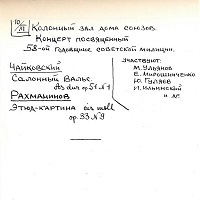 10/XI Колонный зал дома союзов.
Концерт посвященный
58-ой годовщине советской милиции.
Чайковский
Салонный вальс.
As dur op 51 №1
Рахманинов
Этюд-картина cis moll
op. 33 №9
Участвуют:
М. Ульянов
Е. Мирошниченко
Ю. Гуляев
И. Ильинский
и др.